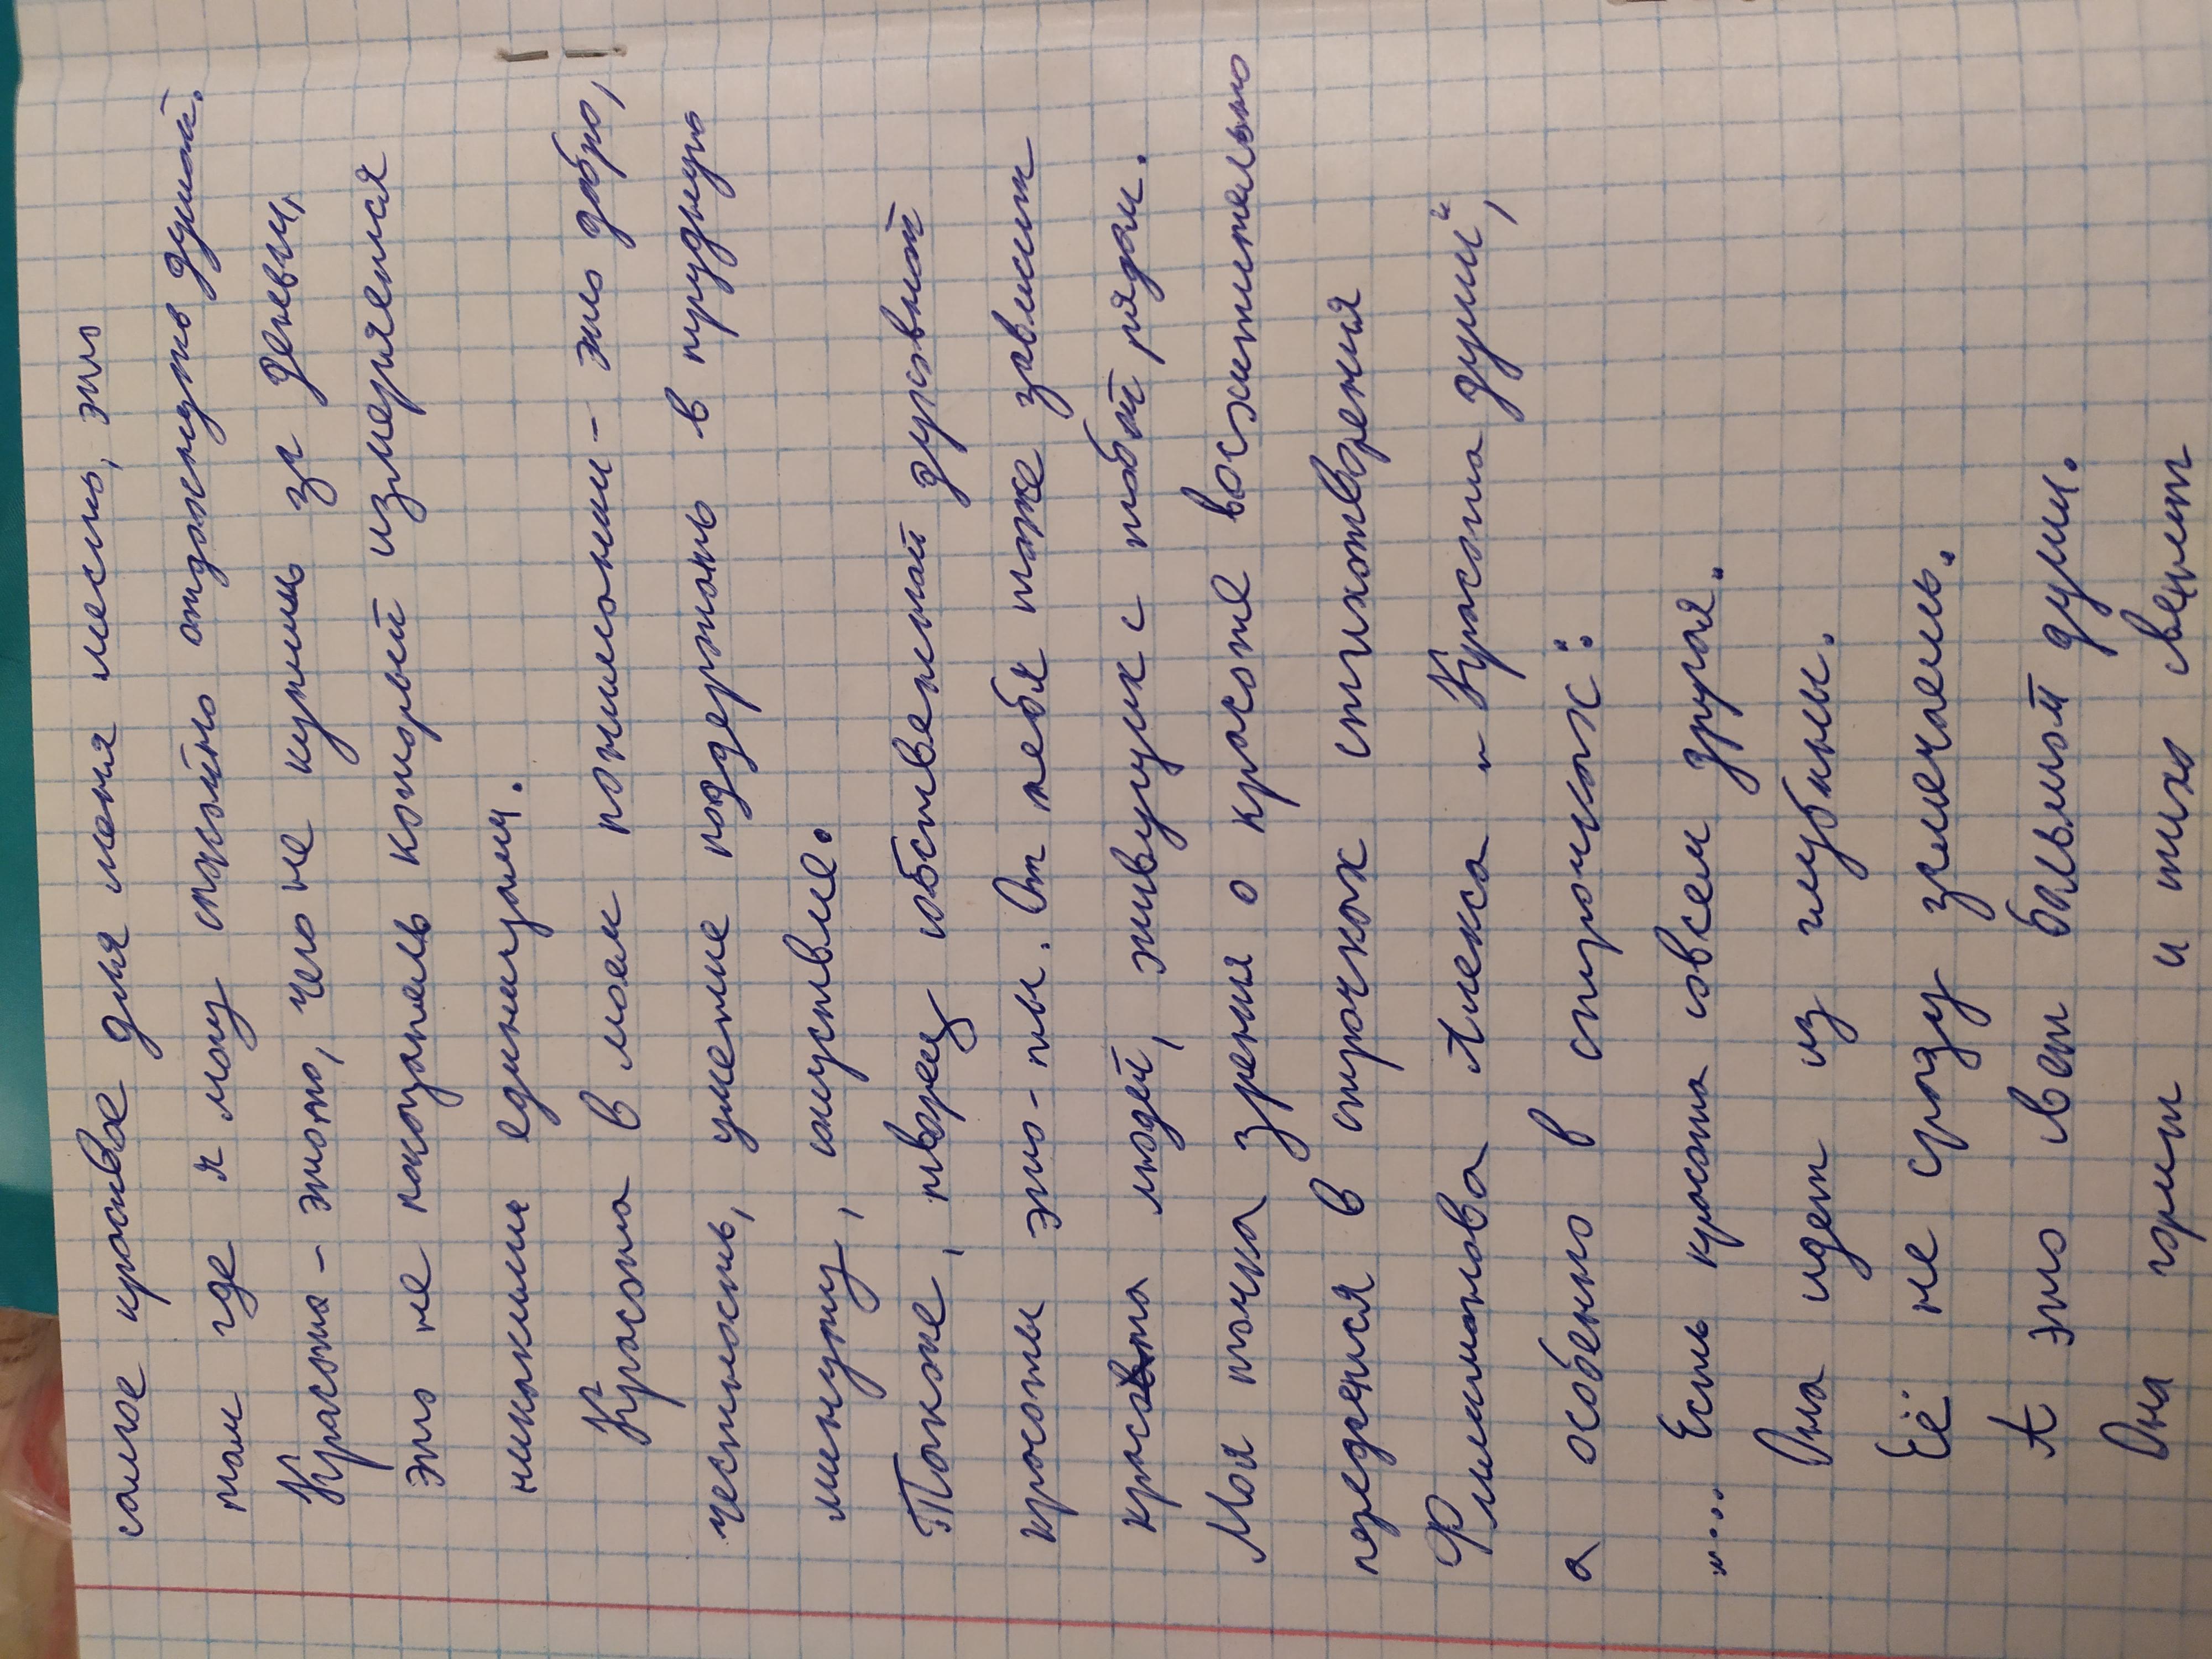 самое красивое для меня место, это
там где я могу спокойно отдохнуть душой.
Красота - это то, чего не купить за деньги,
это не показатель который измеряется
никакими единицами.
Красота в моем понимании - это добро,
честность, умение поддержать в трудную
минуту, сочувствие.
Также, творец собственной духовной
красоты это - ты. От тебя тоже зависит
красота людей, живущих с тобой рядом.
Моя точка зрения о красоте восхитительно
передаётся в строчках стихотворения
Филимонова Алекса „Красота души“,
а особенно в строчках:
„... Есть красота совсем другая.
Она идет из глубины.
Её не сразу замечаешь.
А это вот большой души.
Она горит и тихо светит